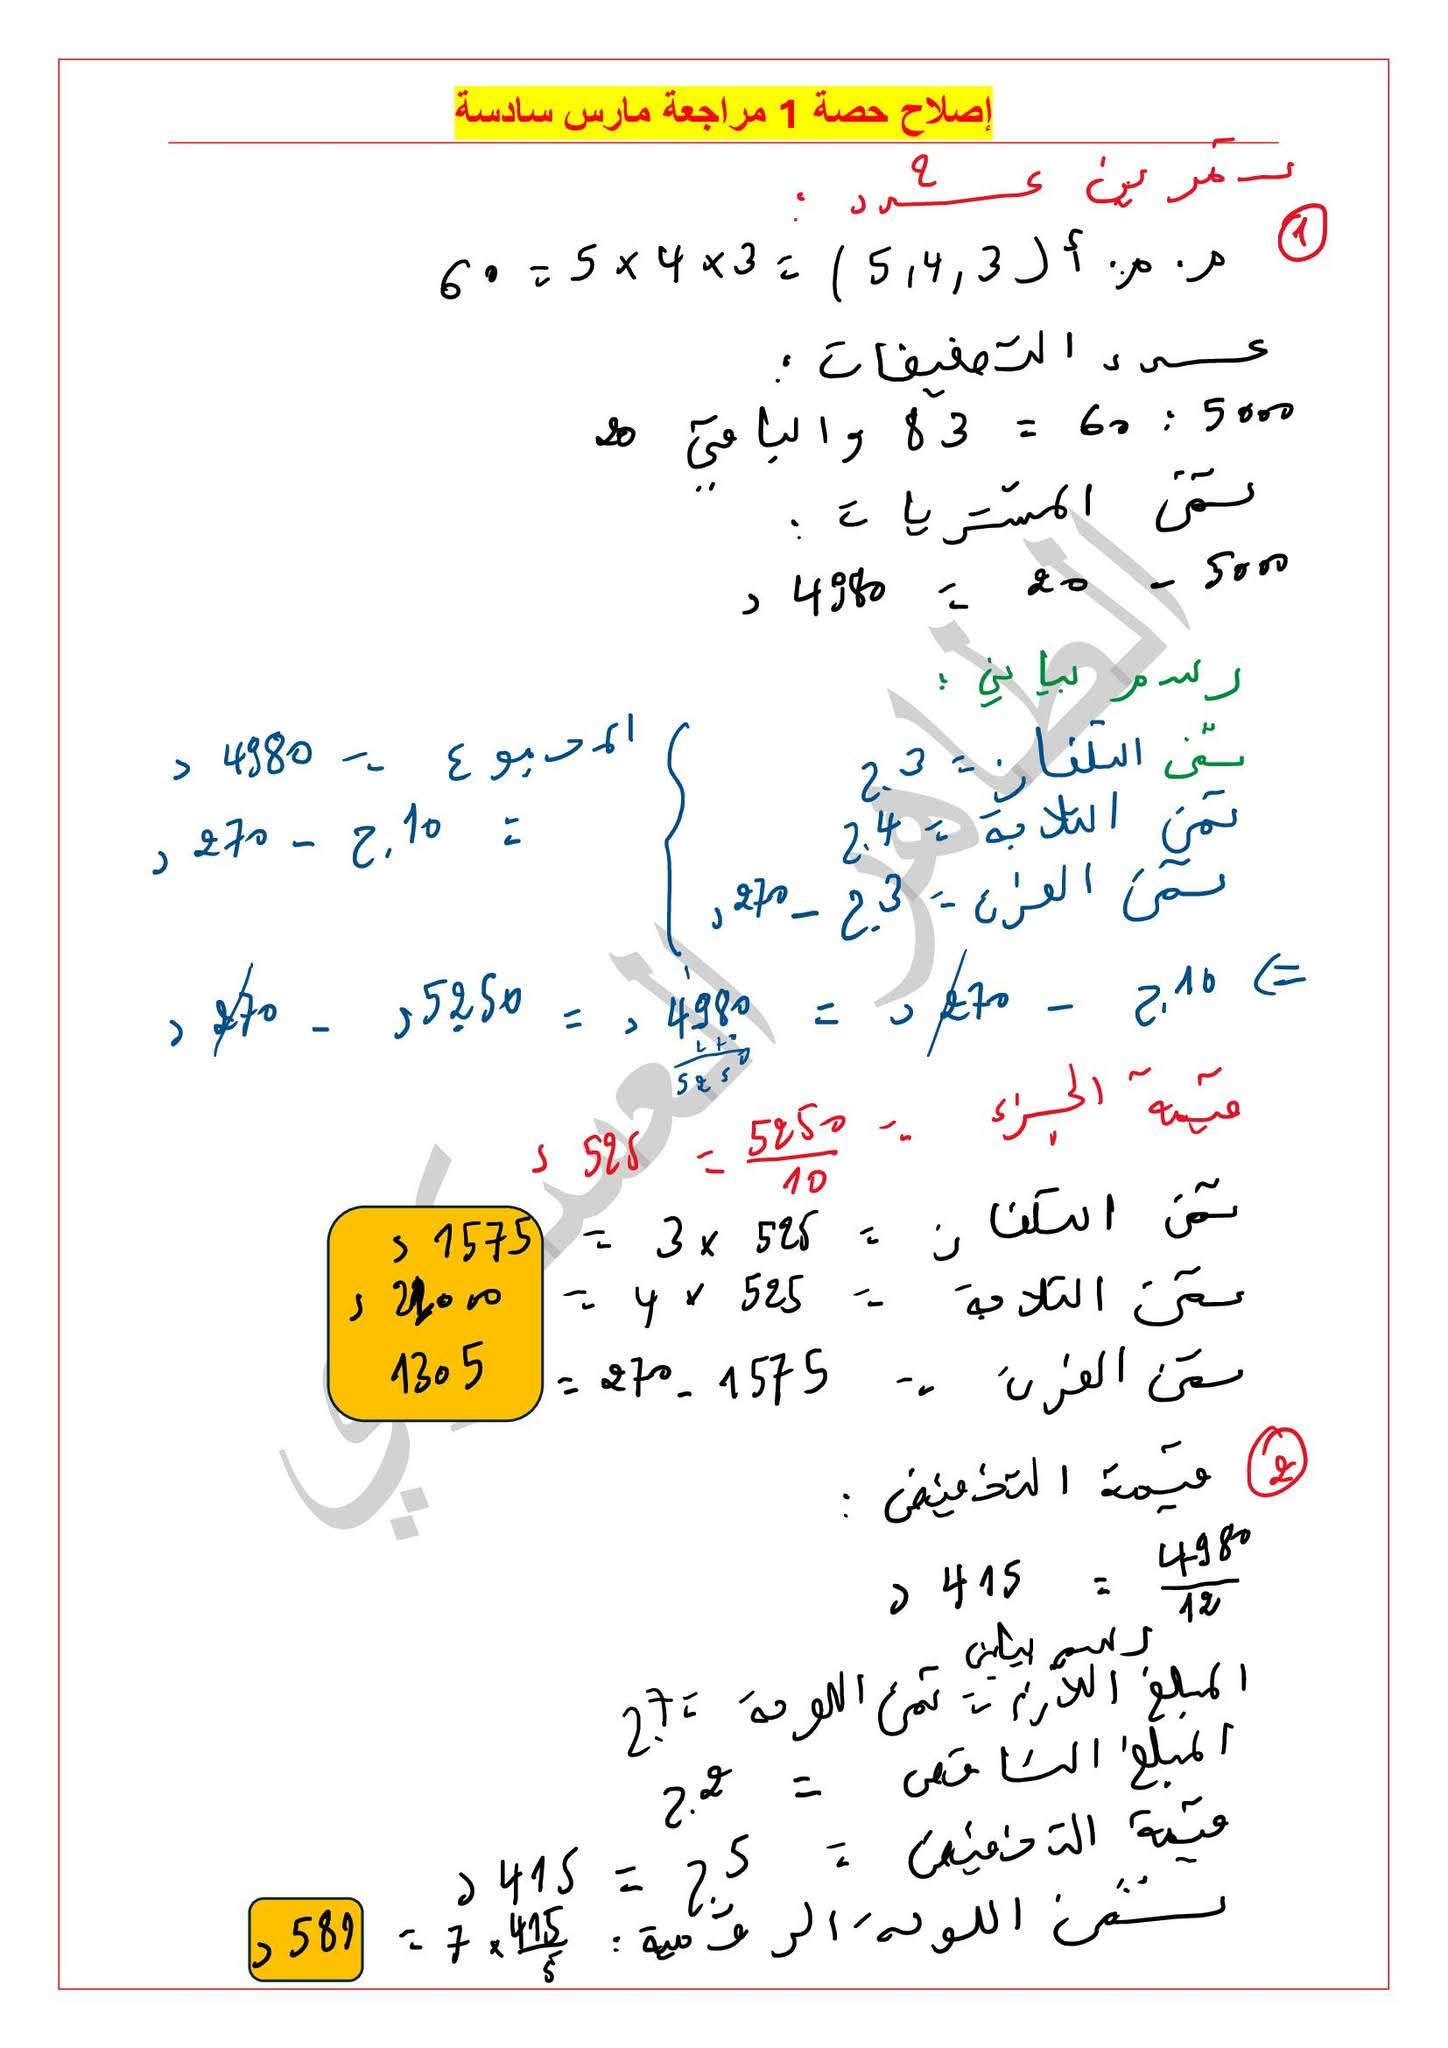 إصلاح حصة 1 مراجعة مارس سادسة
تمرين عـدد 9 :
1
م.م.أ (3 , 4 , 5) = 3 × 4 × 5 = 60
عدد التخفيضات :
5000 : 60 = 83 والباقي 20
ثمن المشتريات :
5000 - 20 = 4980 د
رسم بياني :
ثمن التلفاز = 3.ج
ثمن الثلاجة = 4.ج
ثمن الفرن = 3.ج - 270 د
المجموع = 4980 د
= 10.ج - 270 د
=> 10.ج - 270 د = 4980 د = 5250 د - 270 د
5250
قيمة الجزء = 5250/10 = 525 د
ثمن التلفاز = 525 × 3 = 1575 د
ثمن الثلاجة = 525 × 4 =
ثمن الفرن = 1575 - 270 = 1305
2
قيمة التخفيض :
4980/12 = 415 د
رسم بياني
المبلغ اللازم = ثمن اللوحة = 7.ج
المبلغ الناقص = 2.ج
قيمة التخفيض = 5.ج = 415 د
ثمن اللوحة الرقمية : 415/5 × 7 = 581 د
الطاهر العسكري